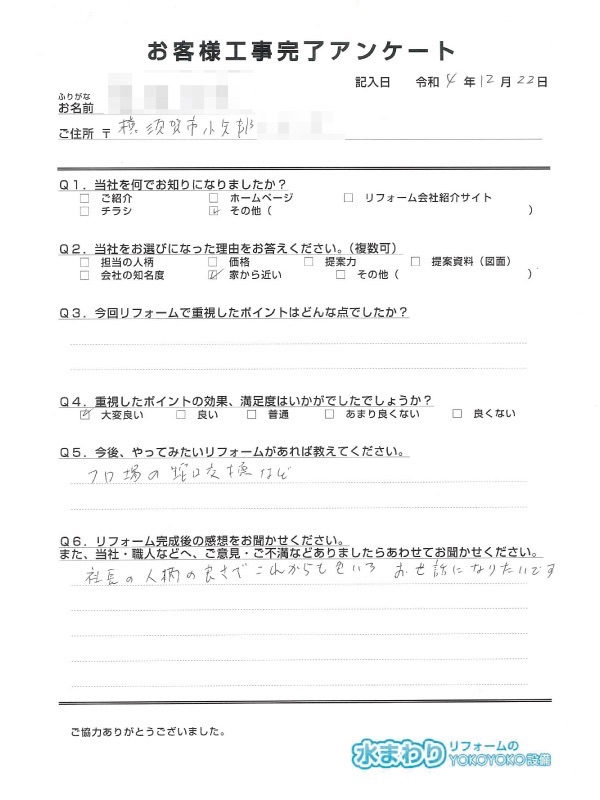 お客様工事完了アンケート
記入日 令和 4 年 12 月 22 日
ふりがな
お名前
ご住所 〒 横須賀市小矢部
Q1．当社を何でお知りになりましたか？
□ ご紹介 □ ホームページ □ リフォーム会社紹介サイト
□ チラシ ☑ その他（ ）
Q2．当社をお選びになった理由をお答えください。（複数可）
□ 担当の人柄 □ 価格 □ 提案力 □ 提案資料（図面）
□ 会社の知名度 ☑ 家から近い □ その他（ ）
Q3．今回リフォームで重視したポイントはどんな点でしたか？
Q4．重視したポイントの効果、満足度はいかがでしたでしょうか？
☑ 大変良い □ 良い □ 普通 □ あまり良くない □ 良くない
Q5．今後、やってみたいリフォームがあれば教えてください。
フロ場の蛇口交換など
Q6．リフォーム完成後の感想をお聞かせください。
また、当社・職人などへ、ご意見・ご不満などありましたらあわせてお聞かせください。
社長の人柄の良さでこれからも色いろ お世話になりたいです
ご協力ありがとうございました。
水まわりリフォームのYOKOYOKO設備